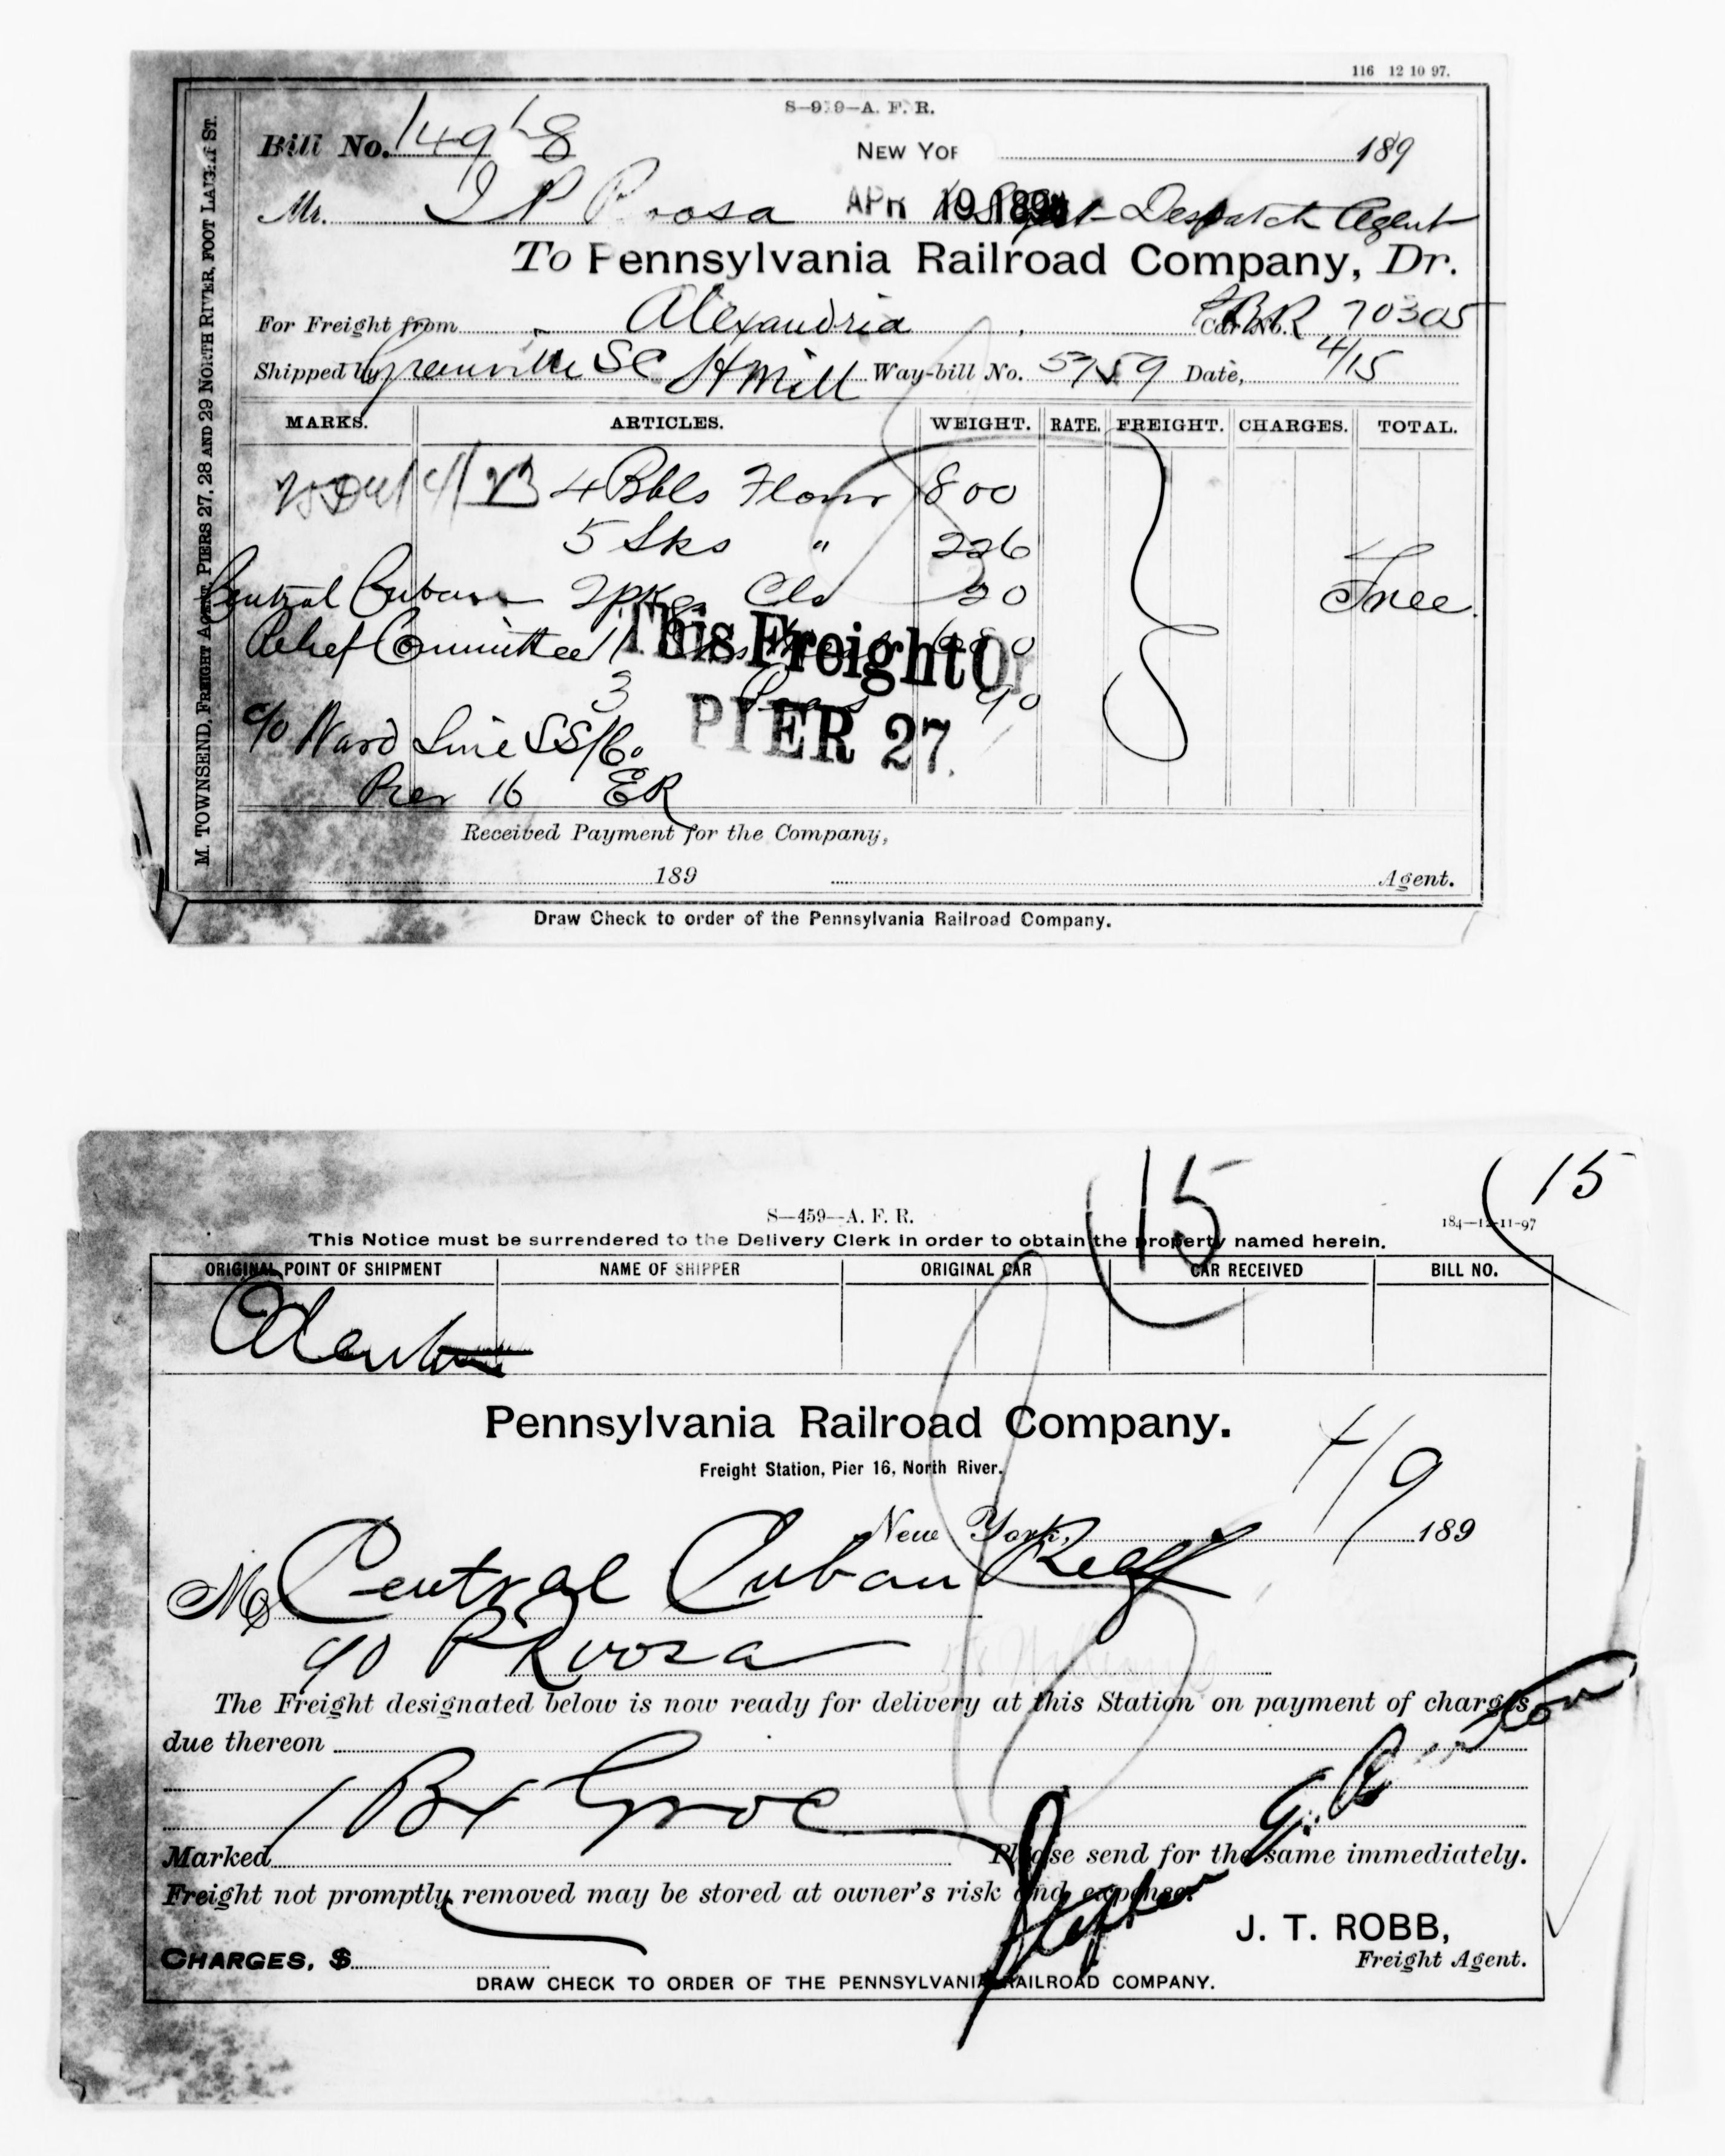 116 12 10 97.
S—919—A. F. R.
Bill No. 149 8
NEW YOR 189
Mr. I P Roosa APR 19 189 Despatch Agent
To Pennsylvania Railroad Company, Dr.
For Freight from Alexandria Car No. 70305
Shipped by Greenville SC H Mill Way-bill No. 5759 Date, 4/15
MARKS. ARTICLES. WEIGHT. RATE. FREIGHT. CHARGES. TOTAL.
4 Bbls Flour 800
5 Sks " 226
Central Cuban 2 pkgs Clo 20 Free.
Relief Committee 11 680
This Freight On
3 Peas 90
PIER 27.
c/o Ward Line SS/Co
Pier 16 ER
Received Payment for the Company,
189 Agent.
Draw Check to order of the Pennsylvania Railroad Company.
M. TOWNSEND, FREIGHT AGENT, PIERS 27, 28 AND 29 NORTH RIVER, FOOT LAIGHT ST.
15
15
S—459—A. F. R.
184—12-11-97
This Notice must be surrendered to the Delivery Clerk in order to obtain the property named herein.
ORIGINAL POINT OF SHIPMENT NAME OF SHIPPER ORIGINAL CAR CAR RECEIVED BILL NO.
Pennsylvania Railroad Company.
Freight Station, Pier 16, North River.
4/9
New York, 189
M Central Cuban Relf
c/o P Roosa
The Freight designated below is now ready for delivery at this Station on payment of charges
due thereon
1 Bx Groc
Marked Please send for the same immediately.
Freight not promptly removed may be stored at owner's risk and expense.
Stephen
J. T. ROBB,
Freight Agent.
CHARGES, $
DRAW CHECK TO ORDER OF THE PENNSYLVANIA RAILROAD COMPANY.